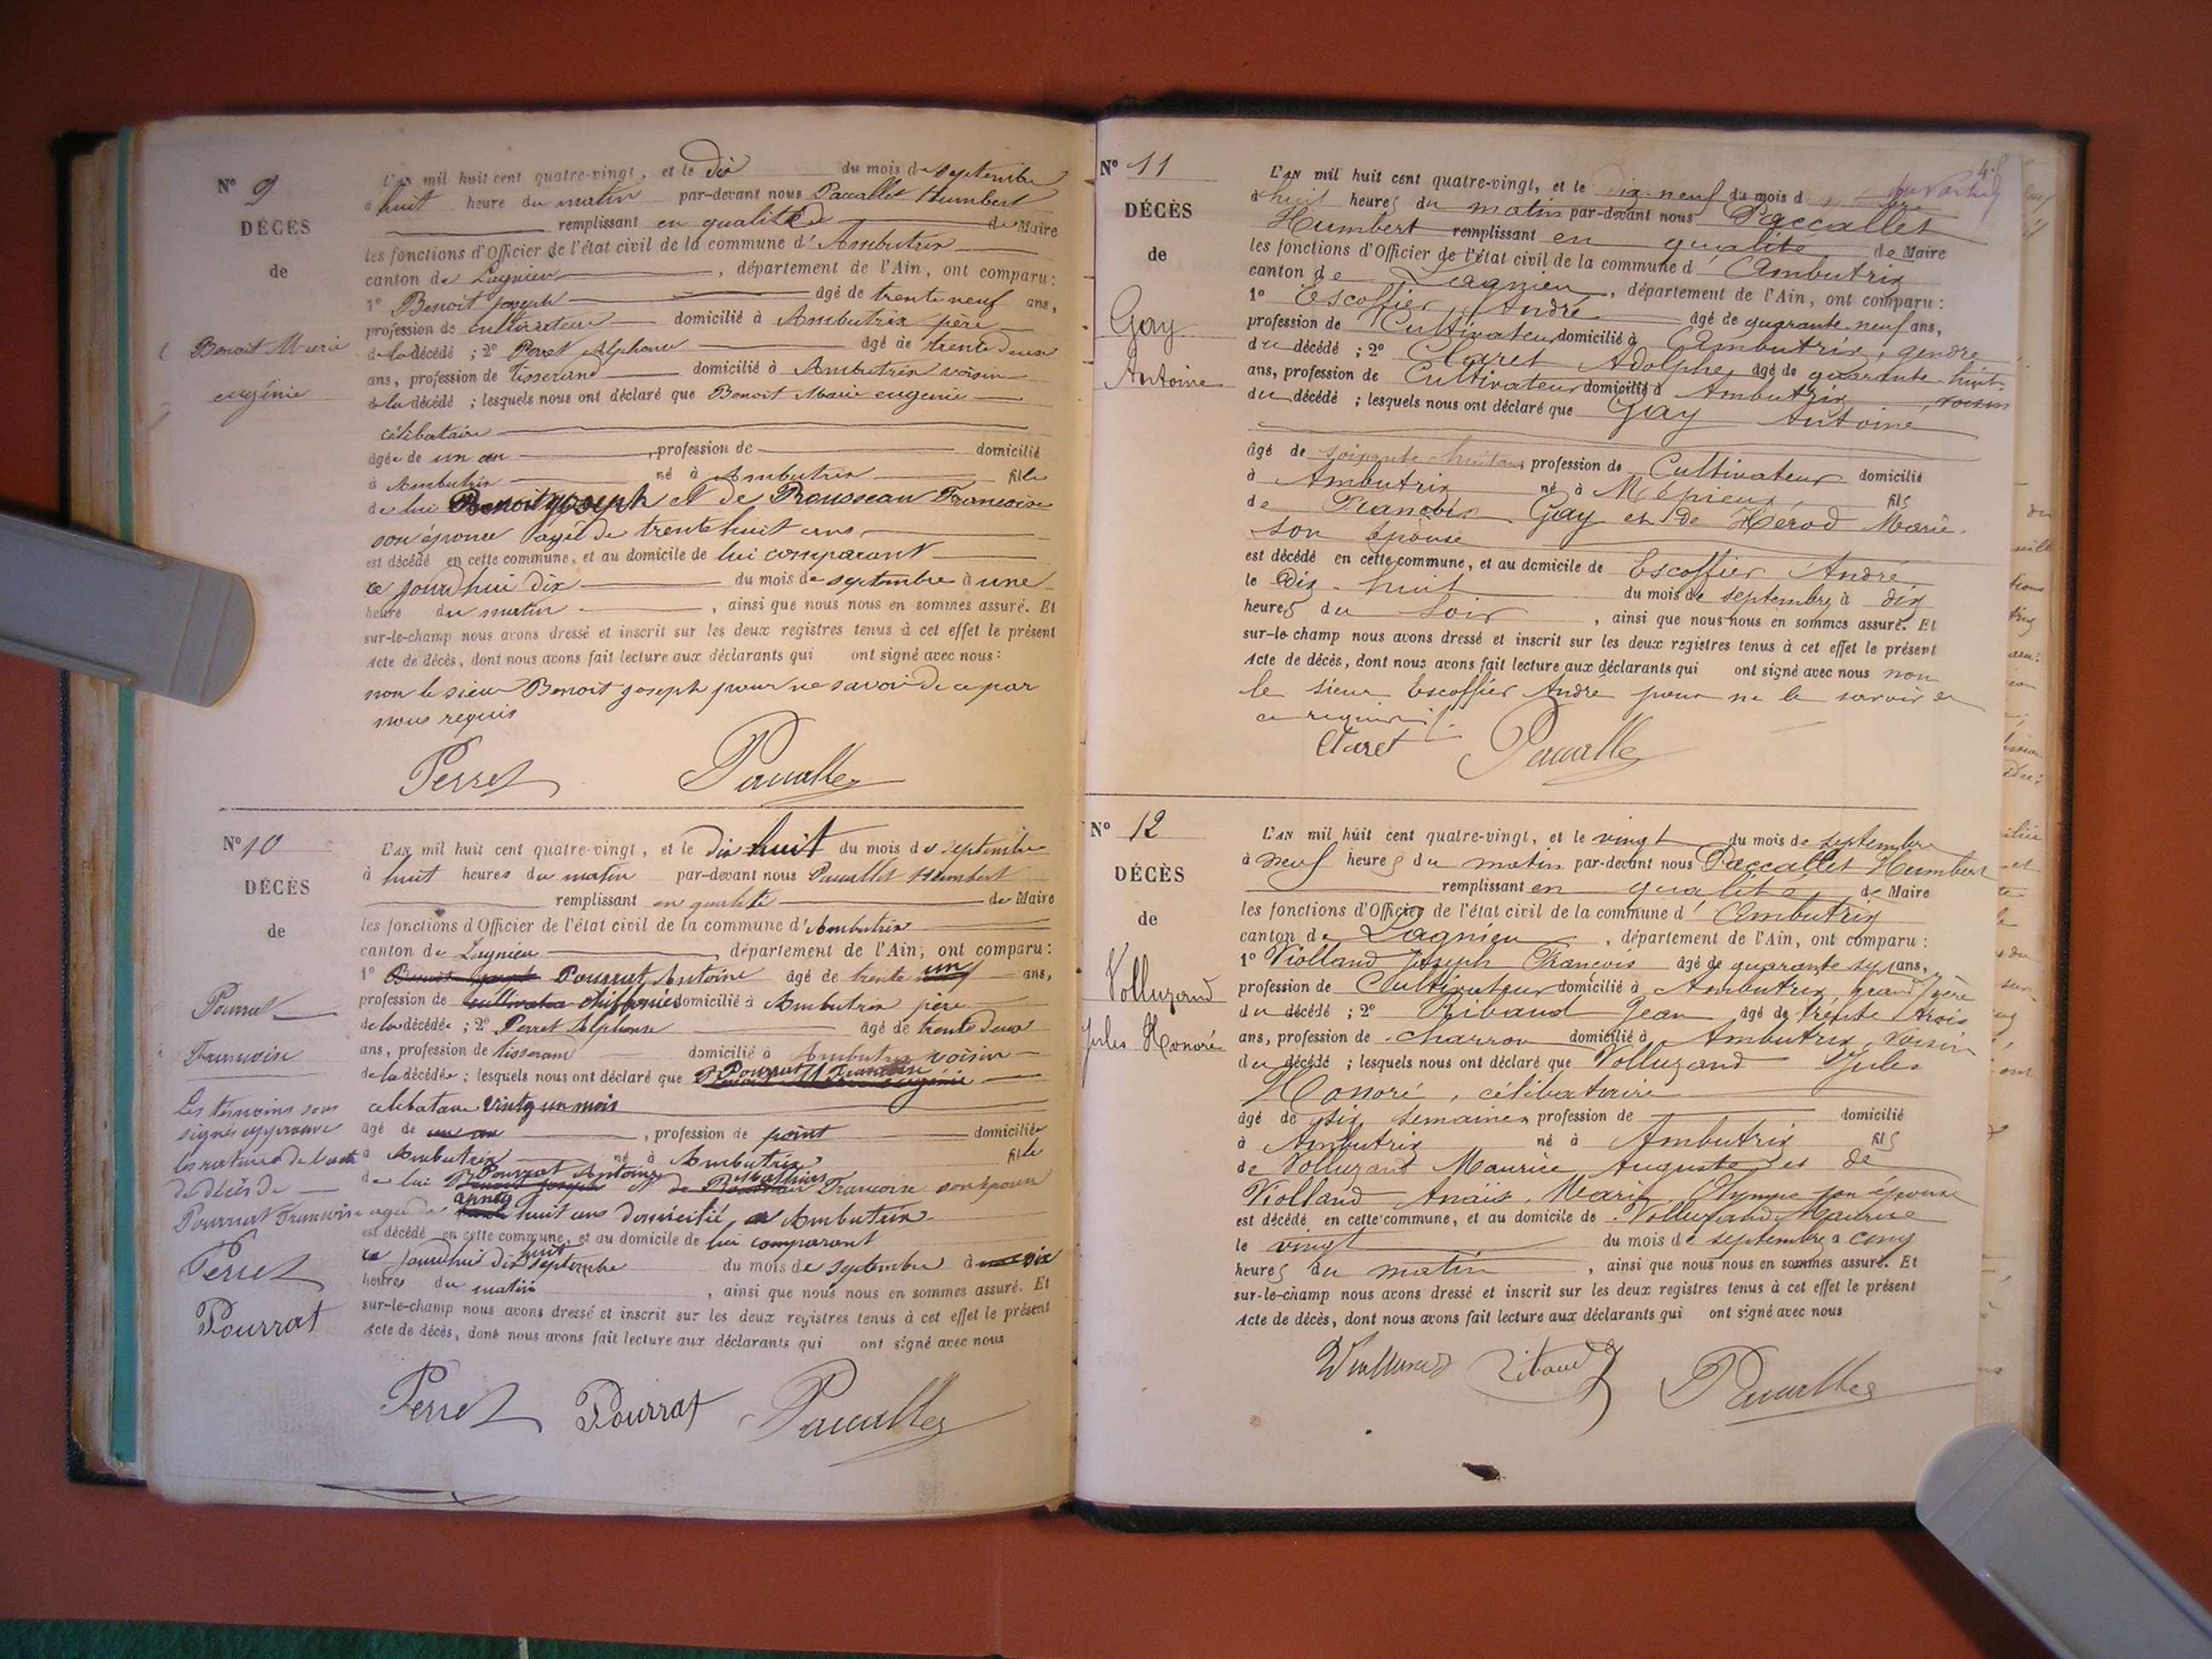 N° 9
DÉCÈS
de
Benoit Marie
eugénie
L'AN mil huit cent quatre-vingt, et le dix du mois de septembre
à huit heure du matin par-devant nous Paccallet Humbert
remplissant en qualité de Maire
les fonctions d'Officier de l'état civil de la commune d'Ambutrix
canton de Lagnieu, département de l'Ain, ont comparu:
1° Benoit joseph âgé de trente neuf ans,
profession de cultivateur domicilié à Ambutrix père
de la décédé; 2° Perret Alphonse âgé de trente deux
ans, profession de tisserand domicilié à Ambutrix voisin
de la décédé; lesquels nous ont déclaré que Benoit Marie eugenie
célibataire
âgée de un an, profession de domicilié
à Ambutrix né à Ambutrix fille
de lui Benoit joseph et de Prousseau Francoise
son épouse agée de trente huit ans
est décédé en cette commune, et au domicile de lui comparant
ce jourd'hui dix du mois de septembre à une
heure du matin, ainsi que nous nous en sommes assuré. Et
sur-le-champ nous avons dressé et inscrit sur les deux registres tenus à cet effet le présent
Acte de décès, dont nous avons fait lecture aux déclarants qui ont signé avec nous:
non le sieur Benoit joseph pour ne savoir de ce par
nous requis
Perret Paccallet
N° 10
DÉCÈS
de
Pourrat
Francoise
Les témoins sous
signés approuve
les ratures de l'acte
de décès de
Pourrat Francoise
Perret
Pourrat
L'AN mil huit cent quatre-vingt, et le dix huit du mois de septembre
à huit heures du matin par-devant nous Paccallet Humbert
remplissant en qualité de Maire
les fonctions d'Officier de l'état civil de la commune d'Ambutrix
canton de Lagnieu, département de l'Ain, ont comparu:
1° Benoit joseph Pourrat Antoine âgé de trente un ans,
profession de cultivateur chiffonier domicilié à Ambutrix père
de la décédée; 2° Perret Alphonse âgé de trente deux
ans, profession de tisserand domicilié à Ambutrix voisin
de la décédée; lesquels nous ont déclaré que Pourrat Francoise
celibataire vingt un mois
âgé de un an, profession de point domiciliée
à Ambutrix né à Ambutrix fille
de lui Pourrat Antoine et de Mathieu Francoise son épouse
agée de huit ans domicilié a Ambutrix
est décédé en cette commune, et au domicile de lui comparant
ce jourdhui dix huit septembre du mois de septembre à une six
heures du matin, ainsi que nous nous en sommes assuré. Et
sur-le-champ nous avons dressé et inscrit sur les deux registres tenus à cet effet le présent
Acte de décès, dont nous avons fait lecture aux déclarants qui ont signé avec nous
Perret Pourrat Paccallet
N° 11
DÉCÈS
de
Gay
Antoine
L'AN mil huit cent quatre-vingt, et le dix-neuf du mois d
à huit heures du matin par-devant nous Paccallet
Humbert remplissant en qualité de Maire
les fonctions d'Officier de l'état civil de la commune d'Ambutrix
canton de Lagnieu, département de l'Ain, ont comparu:
1° Escoffier André âgé de quarante-neuf ans,
profession de Cultivateur domicilié à Ambutrix, gendre
du décédé; 2° Claret Adolphe, âgé de quarante-huit
ans, profession de Cultivateur domicilié à Ambutrix, voisin
du décédé; lesquels nous ont déclaré que Gay Antoine
âgé de soixante-huit ans profession de Cultivateur domicilié
à Ambutrix né à Mépieux fils
de Francois Gay et de Hérod Marie
son épouse
est décédé en cette commune, et au domicile de Escoffier André
le dix-huit du mois de septembre à dix
heures du soir, ainsi que nous nous en sommes assuré. Et
sur-le-champ nous avons dressé et inscrit sur les deux registres tenus à cet effet le présent
Acte de décès, dont nous avons fait lecture aux déclarants qui ont signé avec nous non
le sieur Escoffier André pour ne le savoir de
ce requis
Claret Paccallet
N° 12
DÉCÈS
de
Volluzand
Jules Honoré
L'AN mil huit cent quatre-vingt, et le vingt du mois de septembre
à neuf heures du matin par-devant nous Paccallet Humbert
remplissant en qualité de Maire
les fonctions d'Officier de l'état civil de la commune d'Ambutrix
canton de Lagnieu, département de l'Ain, ont comparu:
1° Violland Joseph Francois âgé de quarante sept ans,
profession de Cultivateur domicilié à Ambutrix, grand père
du décédé; 2° Ribaud Jean âgé de trente trois
ans, profession de charron domicilié à Ambutrix, voisin
du décédé; lesquels nous ont déclaré que Volluzand Jules
Honoré, célibataire
âgé de six semaines profession de domicilié
à Ambutrix né à Ambutrix fils
de Volluzand Maurice Auguste et de
Violland Anaïs, Marie, Olympe son épouse
est décédé en cette commune, et au domicile de Volluzand Maurice
le vingt du mois de septembre à cinq
heures du matin, ainsi que nous nous en sommes assuré. Et
sur-le-champ nous avons dressé et inscrit sur les deux registres tenus à cet effet le présent
Acte de décès, dont nous avons fait lecture aux déclarants qui ont signé avec nous
Violland Ribaud Paccallet